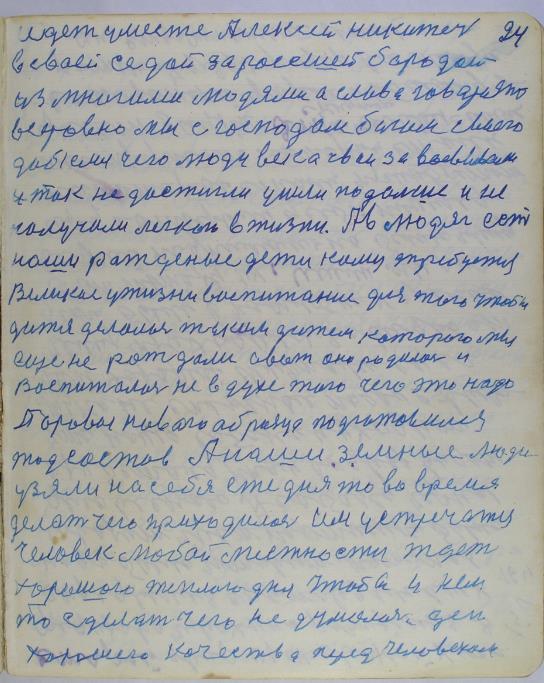 24
идет уместе Алексей никитич
в своей седой заросшей бородой
из многими людями а слова говарято
всеровно мы с господом богом своего
добюсим чего люди века свои завоювали
и так не достигли ушли подальше и не
получили легкого в жизни. Ав людях есть
наши рожденые дети кому требуется
великае ужизни воспитание для того чтобы
дитя делолся таким дитем которого мы
еще не рождали авот оно родилося и
воспиталося не в духе того чего это надо
Паровоз новаго абразца подготовился
подсостав Анаши земные люди
узяли на себя етедня то во время
делат чего приходилося им устречатц
человек любой местности ждет
хорошого теплого дня чтобы у нем
то сделат чего не думалося ден
хорошего качества перед человеком